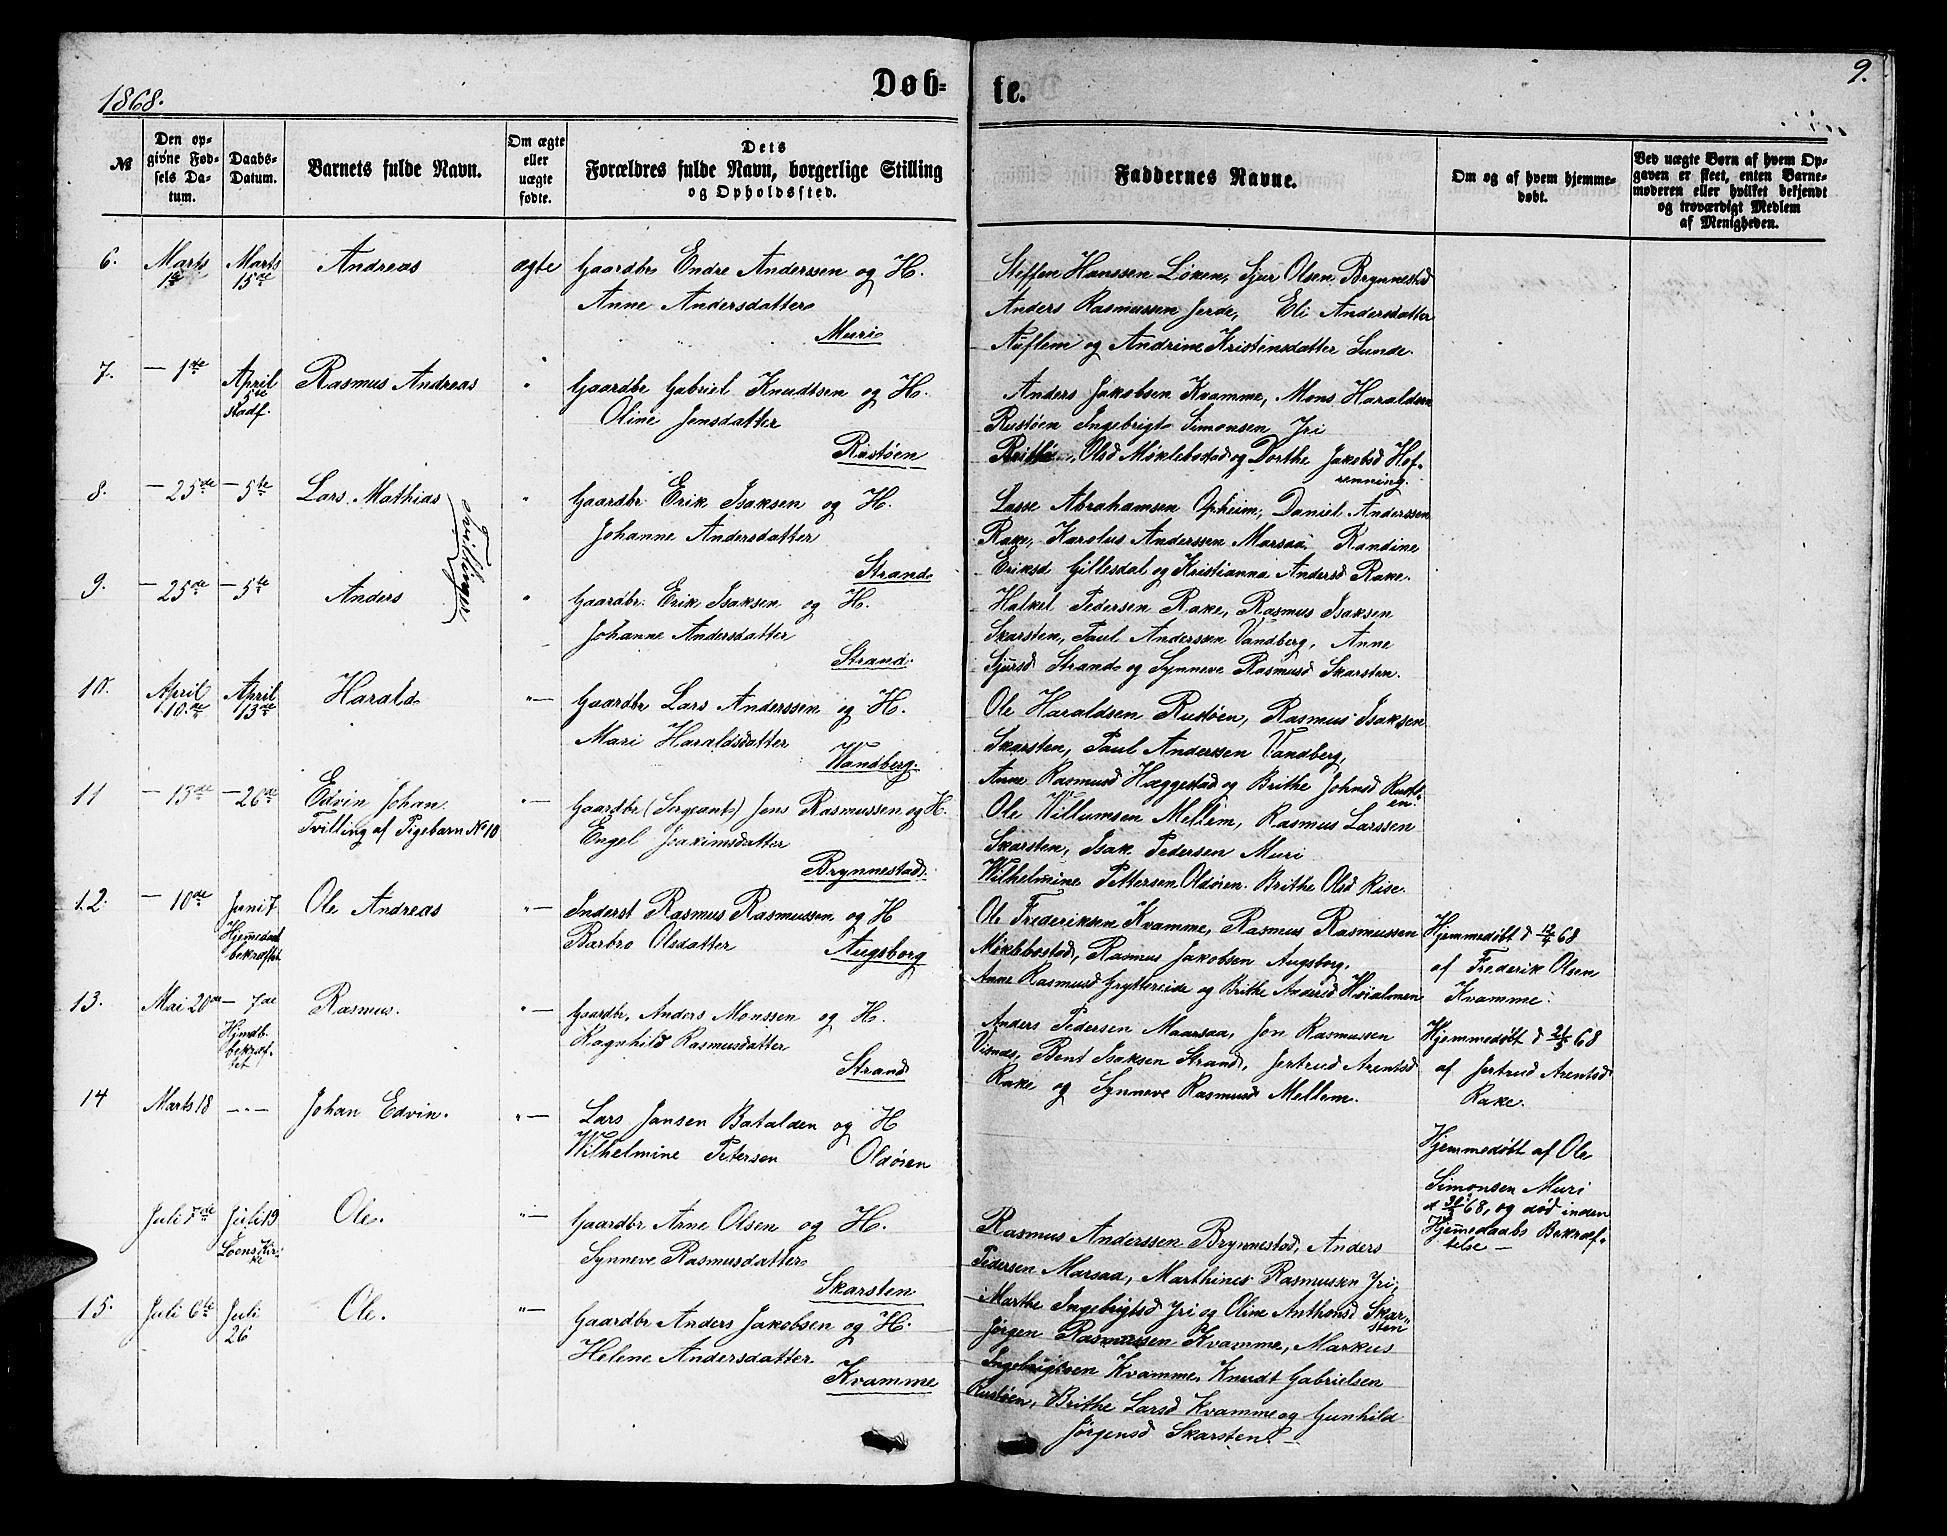 1868.
Døb-
te.
9.
№
Den op-
givne Fød-
sels Da-
tum.
Daabs-
Datum.
Barnets fulde Navn.
Om ægte
eller
uægte
fødte.
Dets
Forældres fulde Navn, borgerlige Stilling
og Opholdssted.
Faddernes Navne.
Om og af hvem hjemme-
døbt.
Ved uægte Børn af hvem Op-
gaven er skeet, enten Barne-
moderen eller hvilket bekjendt
og troværdigt Medlem
af Menigheden.
6. Marts 1te Marts 15de Andreas ægte Gaardbr Endre Anderssen og H.
Anne Andersdatter
Muri
Steffen Hanssen Løken, Sjur Olsen Brynnestad
Anders Rasmussen Jerde, Eli Andersdatter
Auflem og Andrine Kristensdatter Sunde.
7. — 1te April 5te stadf. Rasmus Andreas " Gaardbr Gabriel Knudtsen og H.
Oline Jonsdatter
Rustøen
Anders Jakobsen Kvamme, Mons Haraldsen
Rustøen Ingebrigt Simonsen Jri
Olsd Møklebostad og Dorthe Jakobsd Hof-
renning.
8. — 25de — 5te Lars Mathias " Gaardbr. Erik Isaksen og H.
Johanne Andersdatter
Strand
Tvillinger
Lasse Abrahamsen Opheim, Daniel Anderssen
Rake, Karolus Anderssen Marsaa, Randine
Eriksd Gillesdal og Kristianna Andersd Rake.
9. — 25de — 5te Anders " Gaardbr. Erik Isaksen og H.
Johanne Andersdatter
Strand.
Halkel Pedersen Rake, Rasmus Isaksen
Skarsten, Paul Andersen Vandberg, Anne
Sjursd Strand og Synneve Rasmusd Skarsten.
10. April 10.de April 13de Harald "— Gaardbr Lars Anderssen og H.
Mari Haraldsdatter
Wandberg.
Ole Haraldsen Rustøen, Rasmus Isaksen
Skarsten, Paul Andersen Vandberg,
Anne Rasmusd Hæggestad og Brithe Johnsd Rustø-
en.
11 — 13de — 26de Edvin Johan. "— Gaardbr (Sergeant) Jens Rasmussen og H.
Tvilling af Pigebarn No 10
Engel Joakimsdatter
Brynnestad.
Ole Willumsen Mellem, Rasmus Larssen
Skarsten, Isak Pedersen Muri
Wilhelmine Pettersen Oldøren. Brithe Olsd Rise.
12. — 10de Juni 7 Ole Andreas "— Inderst Rasmus Rasmussen og H
Hjemedaab
bekræftet
Barbro Olsdatter Augsborg
Ole Frederiksen Kvamme, Rasmus Rasmussen
Møklebostad, Rasmus Jakobsen Augsborg,
Anne Rasmusd Gryttereide og Brithe Andersd Høialmen
Hjemmedøbt d 12/4 68
af Frederik Olsen
Kvamme.
13. Mai 20de — 7de Rasmus. "— Gaardbr. Anders Monssen og H.
Hjmdb.
bekræf-
tet
Ragnhild Rasmusdatter
Strand
Anders Pedersen Maarsaa, Jon Rasmussen
Visnes, Bent Isaksen Strand, Jertrud Arentsd
Rake og Synneve Rasmusd Mellem.
Hjemmedøbt d 21/5 68
af Jertrud Arentsd
Rake.
14 Marts 18 —"— Johan Edvin. "— Lars Jansen Batalden og H
Wilhelmine Petersen Oldøren
Hjemmedøbt af Ole
Simonsen Muri
68, og død inden
Hjemedaabs Bekræf-
telse —
Juli 7de Juli 19 Ole. "— Gaardbr Arne Olsen og H.
Loens Kir-
ke
Synneve Rasmusdatter
Skarsten
Rasmus Anderssen Brynnestad, Anders
Pedersen Marsaa, Marthines Rasmussen Jri,
Marthe Ingebrigtsd Jri og Oline Anthonsd Skar-
sten
15. Juli 6te Juli 26 Ole. "— Gaardbr Anders Jakobsen og H.
Helene Andersdatter
Kvamme
Jørgen Rasmussen Kvamme, Markus
Ingebrigtsen Kvamme, Knudt Gabrielsen
Rustøen, Brithe Larsd Kvamme og Gunhild
Jørgensd Skarsten. —